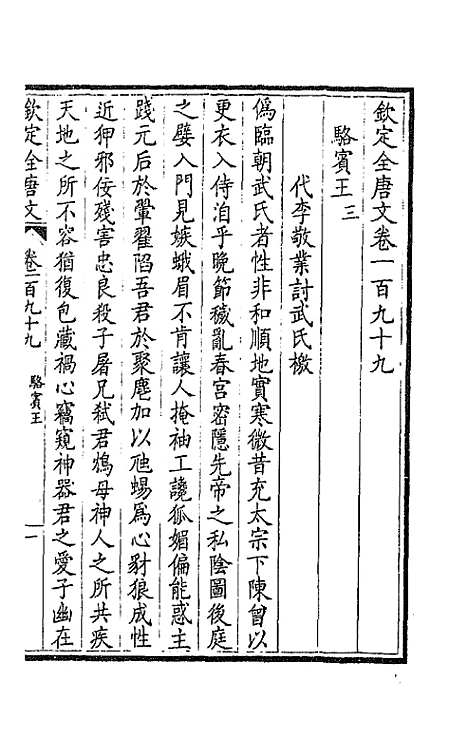 欽定全唐文卷一百九十九
駱賓王三
代李敬業討武氏檄
僞臨朝武氏者性非和順地實寒微昔充太宗下陳曾以
更衣入侍洎乎晚節穢亂春宮密隱先帝之私陰圖後庭
之嬖入門見嫉蛾眉不肯讓人掩袖工讒狐媚偏能惑主
踐元后於翬翟陷吾君於聚麀加以虺蜴爲心豺狼成性
近狎邪佞殘害忠良殺子屠兄弒君鴆母神人之所共疾
天地之所不容猶復包藏禍心竊窺神器君之愛子幽在
欽定全唐文 卷一百九十九 駱賓王 一